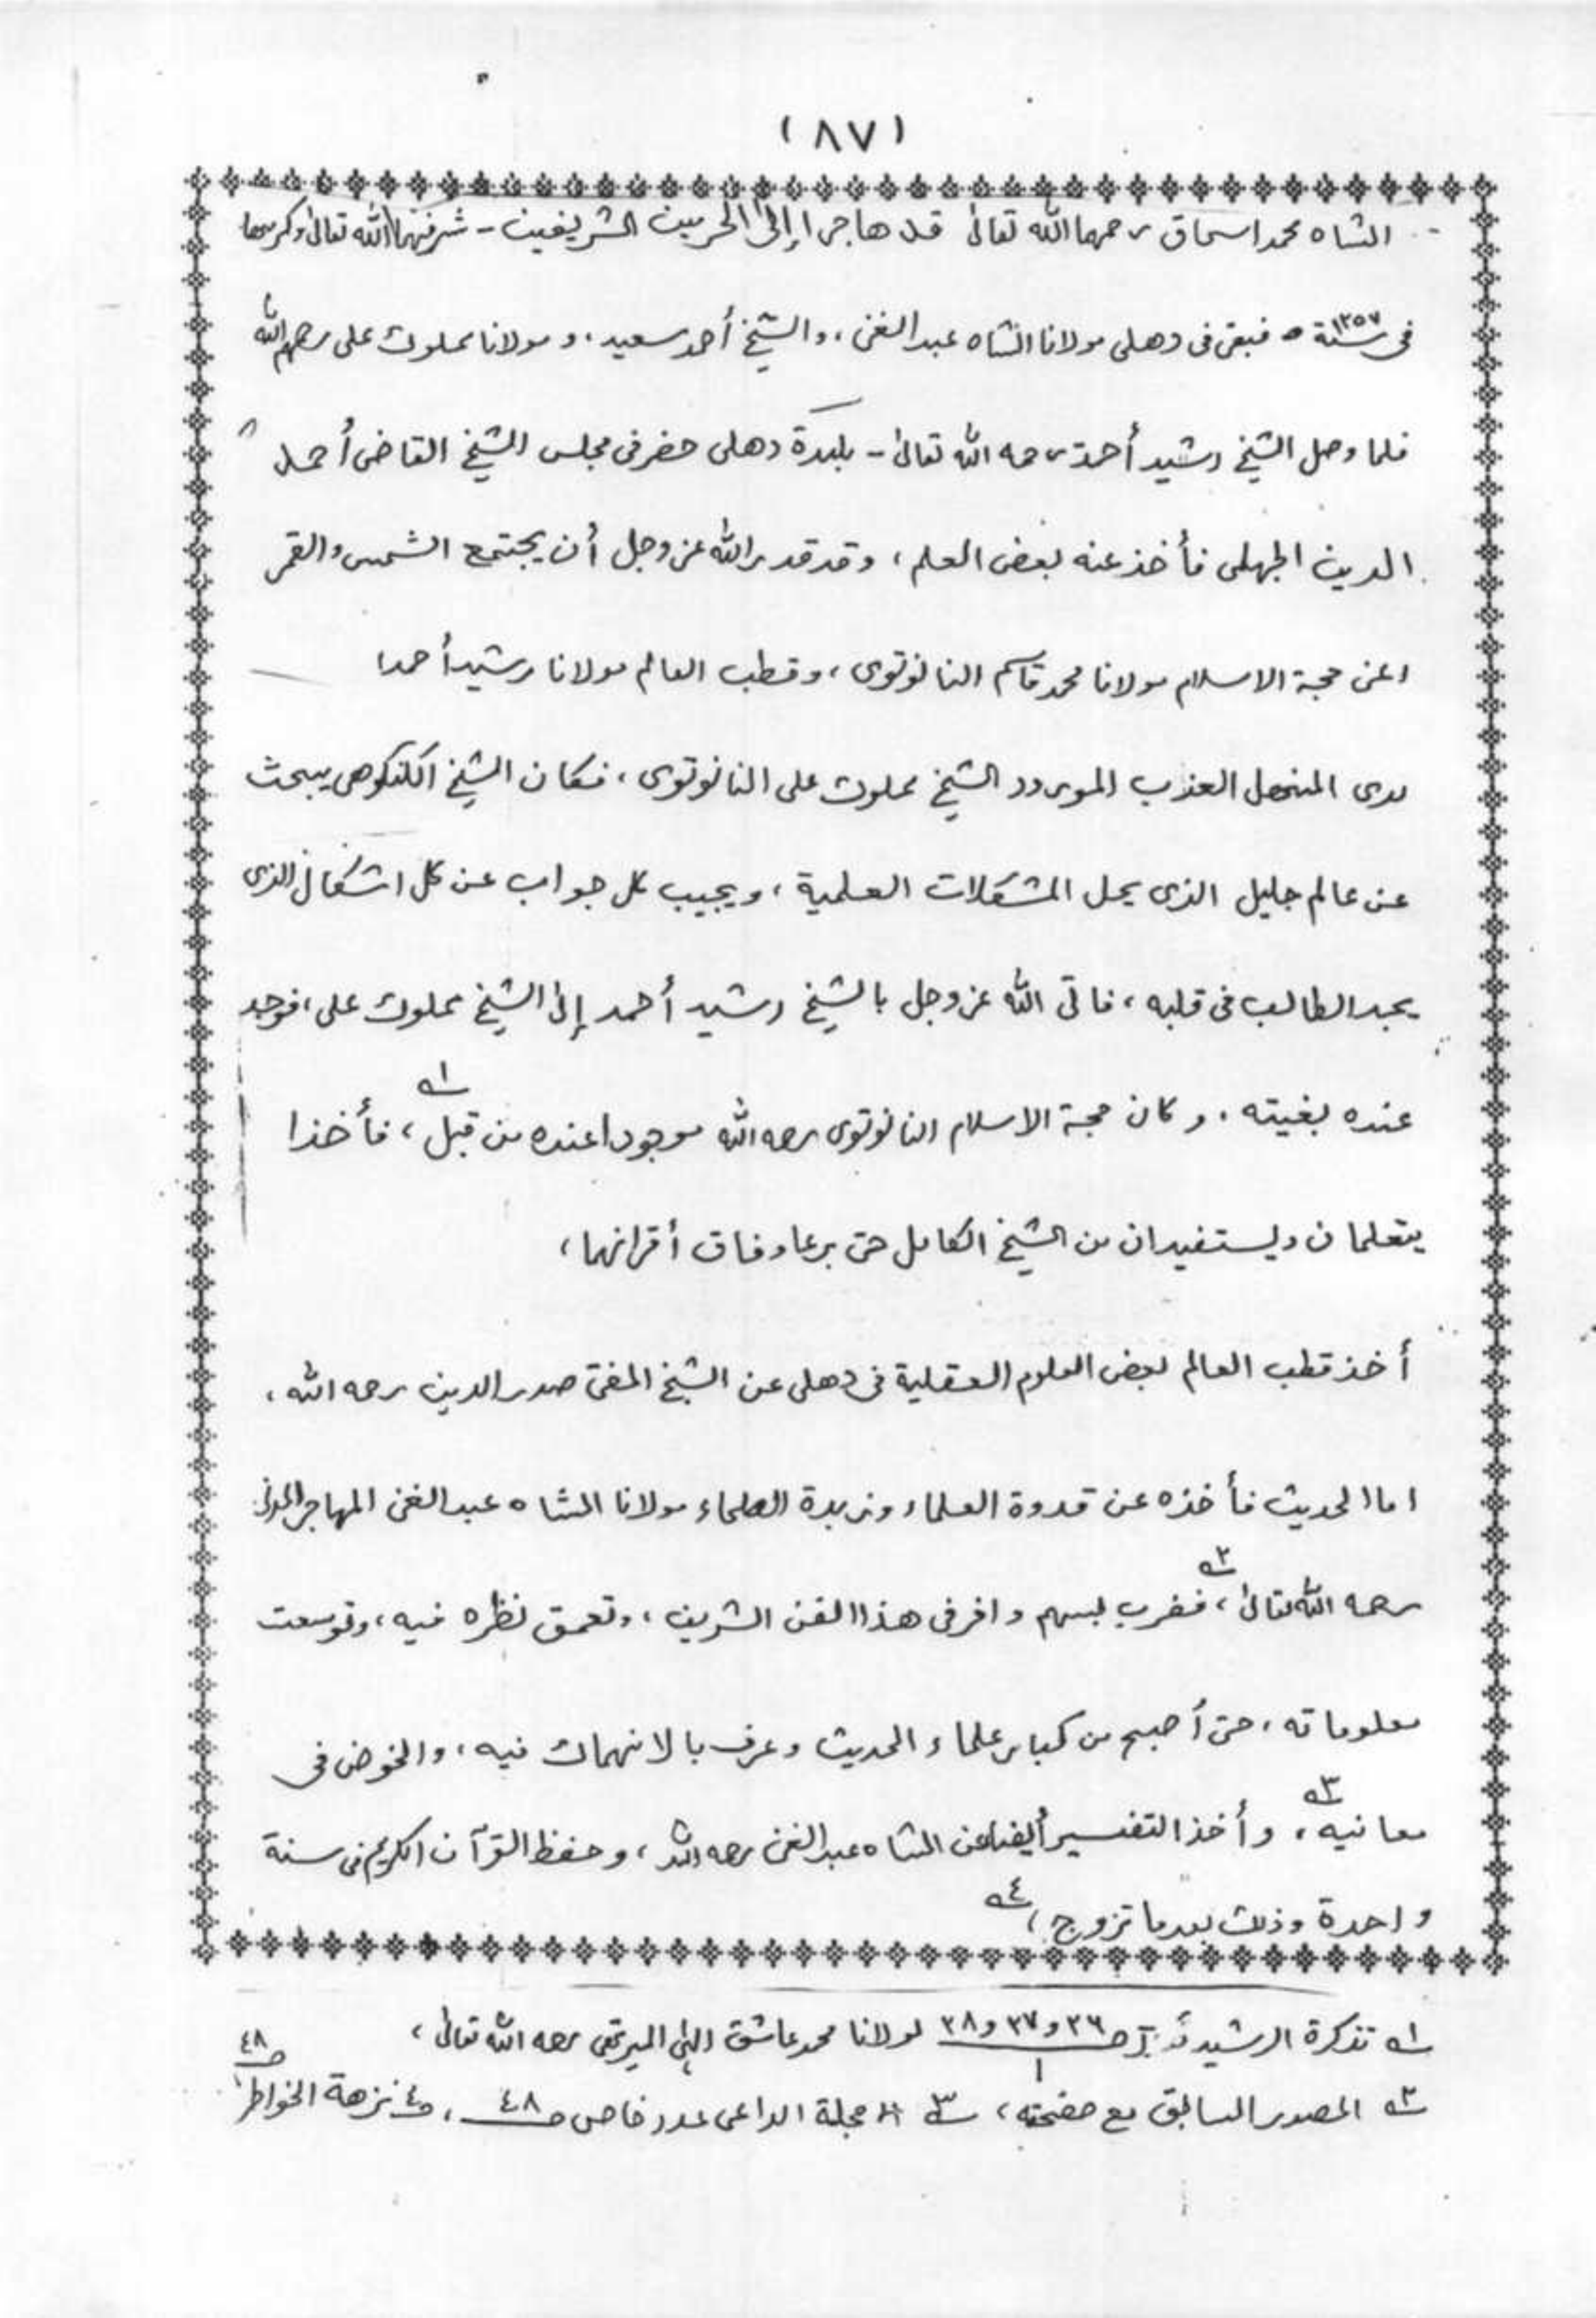 (٨٧)
الشاه محمد اسحاق رحمهما الله تعالى قد هاجرا إلى الحرمين الشريفين - شرفهما الله تعالى وكرمهما
فى سنة ١٢٥٧ه فبقى فى دهلى مولانا الشاه عبد الغنى، والشيخ أحمد سعيد، و مولانا مملوك على رحمهم الله
فلما وصل الشيخ رشيد أحمد رحمه الله تعالى - بلدة دهلى حضر فى مجلس الشيخ القاضى أحمد
الدين الجهلمى فأخذ عنه بعض العلم، وقد قدر الله عز وجل أن يجتمع الشمس والقمر
اعنى حجة الاسلام مولانا محمد قاسم النانوتوى، وقطب العالم مولانا رشيد أحمد
لدى المنهل العذب المورود الشيخ مملوك على النانوتوى، فكان الشيخ الكنكوهى يبحث
عن عالم جليل الذى يحل المشكلات العلمية، ويجيب كل جواب عن كل اشكال الذى
يجد الطالب فى قلبه، فاتى الله عز وجل بالشيخ رشيد أحمد إلى الشيخ مملوك على، فوجد
عنده بغيته. وكان حجة الاسلام النانوتوى رحمه الله موجودا عنده من قبل، ١ه فأخذا
يتعلمان ويستفيدان من الشيخ الكامل حتى برعا وفاق أقرانهما،
أخذ قطب العالم بعض العلوم العقلية فى دهلى عن الشيخ المفتى صدر الدين رحمه الله،
اما الحديث فأخذه عن قدوة العلماء وزبدة الصلحاء مولانا الشاه عبد الغنى المهاجر المدنى
رحمه الله تعالى، ٢ه فضرب بسهم وافر فى هذا الفن الشريف، وتعمق نظره فيه، وتوسعت
معلوماته، حتى أصبح من كبار علماء الحديث وعرف بالانهماك فيه، والخوض فى
معانيه، ٣ه وأخذ التفسير أيضا عن الشاه عبد الغنى رحمه الله، وحفظ القرآن الكريم فى سنة
واحدة وذلك بعد ما تزوج، ٤ه
١ه تذكرة الرشيد ج ١ ص ٣٦ و ٣٧ و ٣٨ لمولانا محمد عاشق إلهى الميرتهى رحمه الله تعالى،
٢ه المصدر السابق مع صفحته، ٣ه مجلة الداعى عدد خاص ص ٤٨، و٤ نزهة الخواطر ص ٤٨